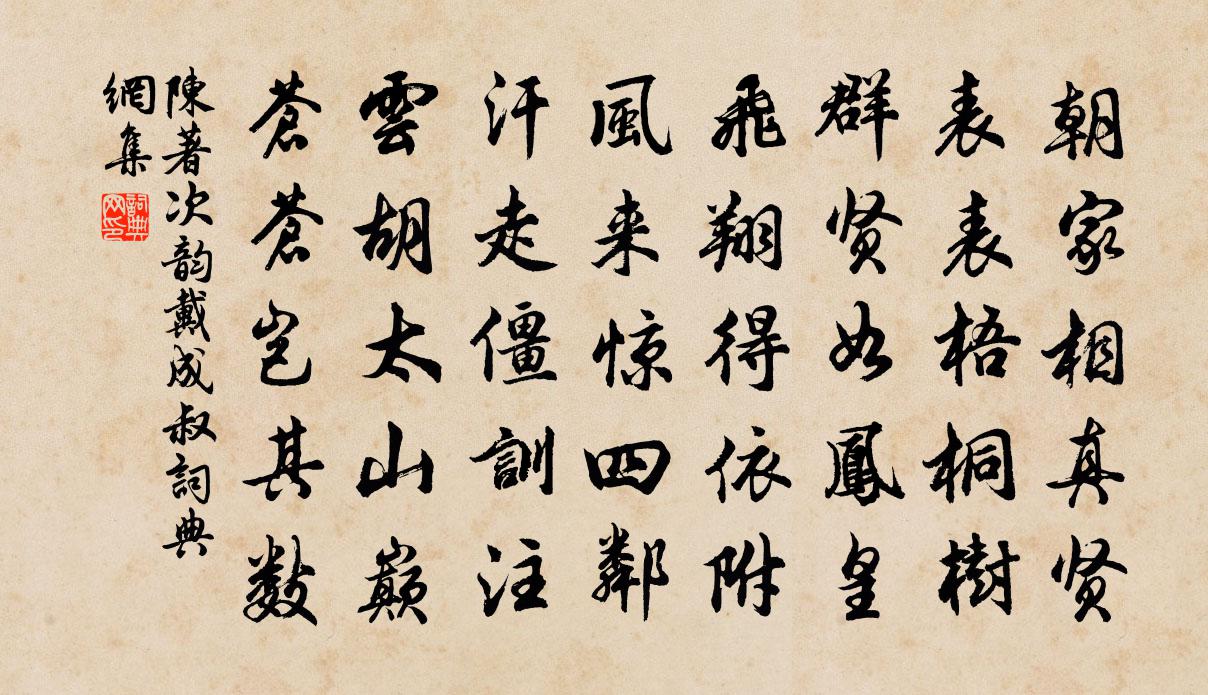 朝家相真贤
表表梧桐樹
群贤如鳳皇
飛翔得依附
風来惊四鄰
汗走僵訓注
雲胡太山巔
蒼蒼岂其数
陳著次韵戴成叔詞典
網集
詞典
网印